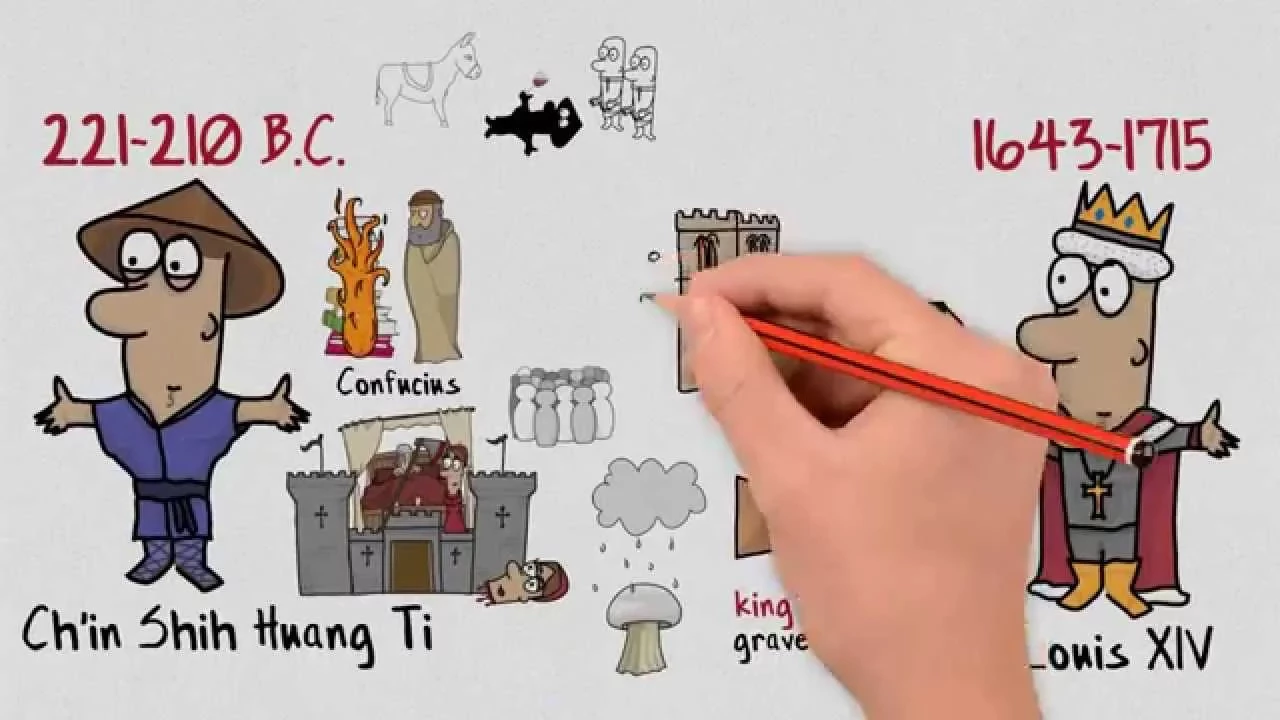 221-210 B.C.
1643-1715
Confucius
Ch'in Shih Huang Ti
king
grave
Louis XIV